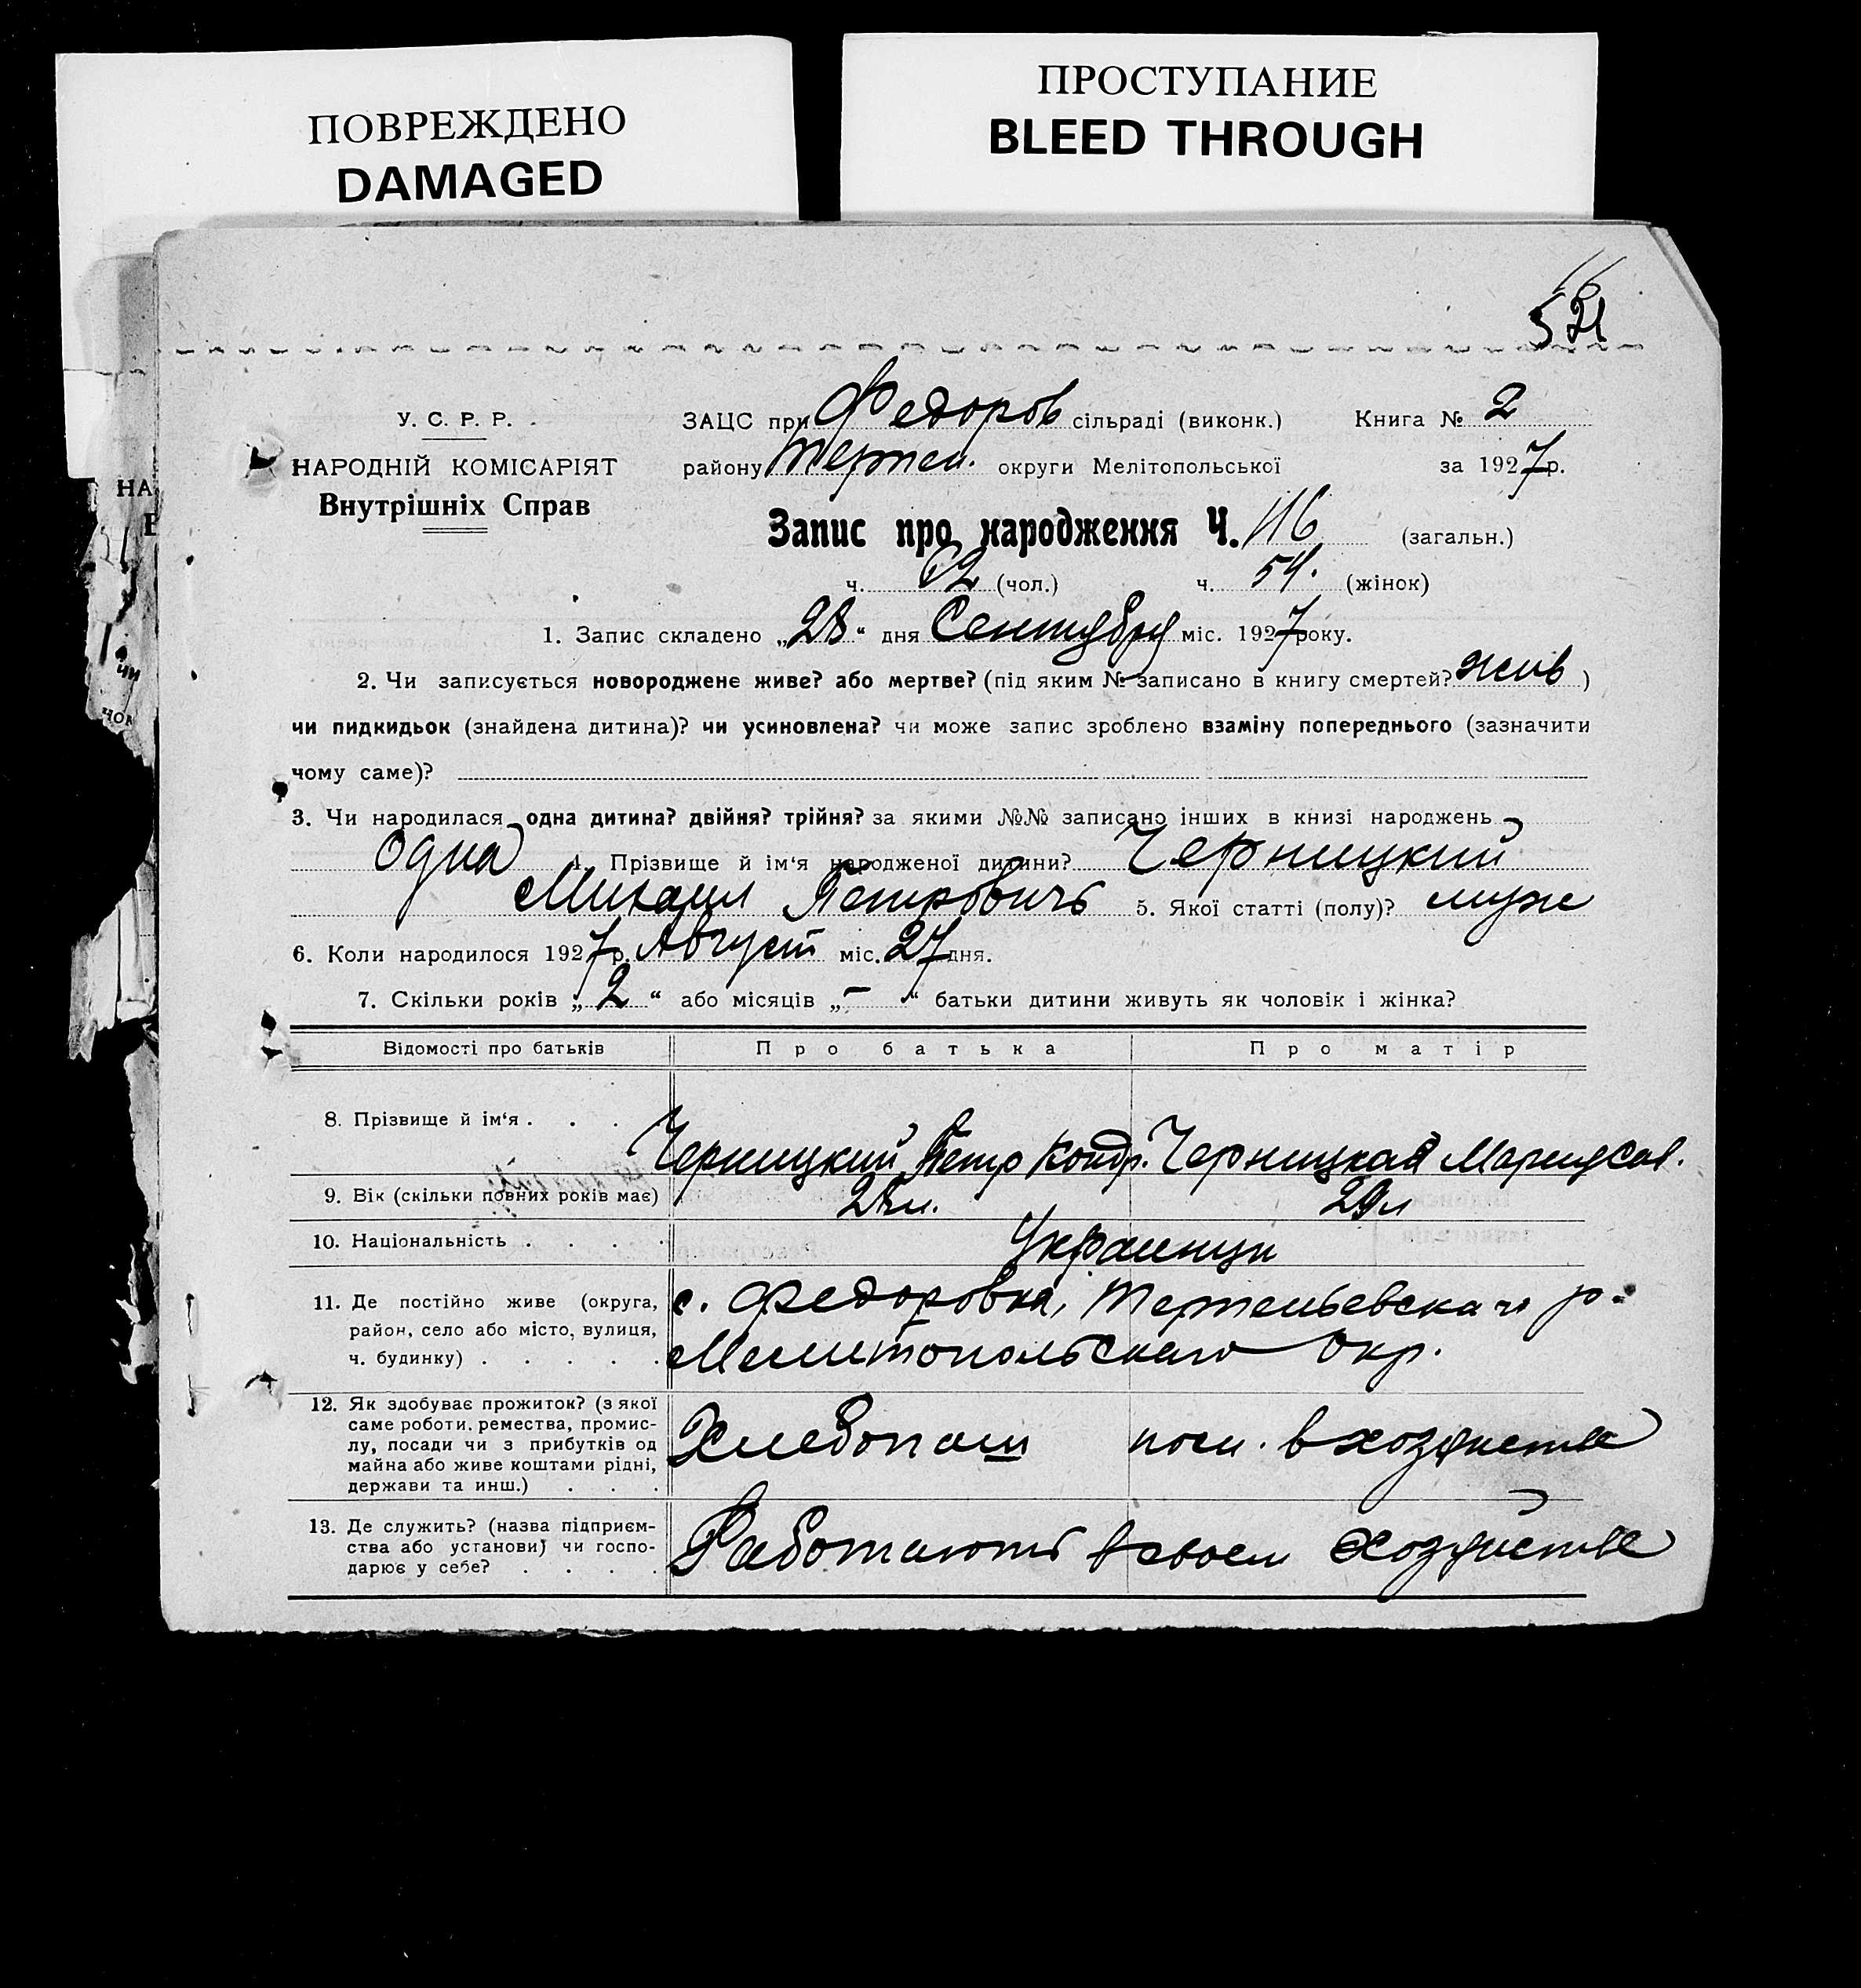 ПОВРЕЖДЕНО
DAMAGED
ПРОСТУПАНИЕ
BLEED THROUGH
У. С. Р. Р.
НАРОДНІЙ КОМІСАРІЯТ
Внутрішніх Справ
ЗАЦС при Федоров сільраді (виконк.) Книга № 2
району Терпен. округи Мелітопольської за 1927 р.
Запис про народження Ч. 116 (загальн.)
ч. 62 (чол.) ч. 54. (жінок)
1. Запис складено „28“ дня Сентября міс. 1927 року.
2. Чи записується новороджене живе? або мертве? (під яким № записано в книгу смертей? жив )
чи пидкидьок (знайдена дитина)? чи усиновлена? чи може запис зроблено взаміну попереднього (зазначити
чому саме)?
3. Чи народилася одна дитина? двійня? трійня? за якими №№ записано інших в книзі народжень
одна 4. Прізвище й ім‘я народженої дитини? Черницкий
Михаил Петровичъ 5. Якої статті (полу)? муж
6. Коли народилося 1927 р. Август міс. 27 дня.
7. Скільки років „2“ або місяців „–“ батьки дитини живуть як чоловік і жінка?
Відомості про батьків Про батька Про матір
8. Прізвище й ім‘я . . . Черницкий Петр Кондр. Черницкая Мария Сав.
9. Вік (скільки повних років має) 28 л. 29 л
10. Національність . . . . Украинци
11. Де постійно живе (округа,
район, село або місто, вулиця,
ч. будинку) . . . . .
с. Федоровка, Терпеньевскаго р.
Мелитопольскаго Окр.
12. Як здобуває прожиток? (з якої
саме роботи, ремества, промис-
лу, посади чи з прибутків од
майна або живе коштами рідні,
держави та инш.) . . .
Хлебопаш пом. в хозяйстве
13. Де служить? (назва підприєм-
ства або установи) чи госпо-
дарює у себе? . . . .
Работают в своем хозяйстве